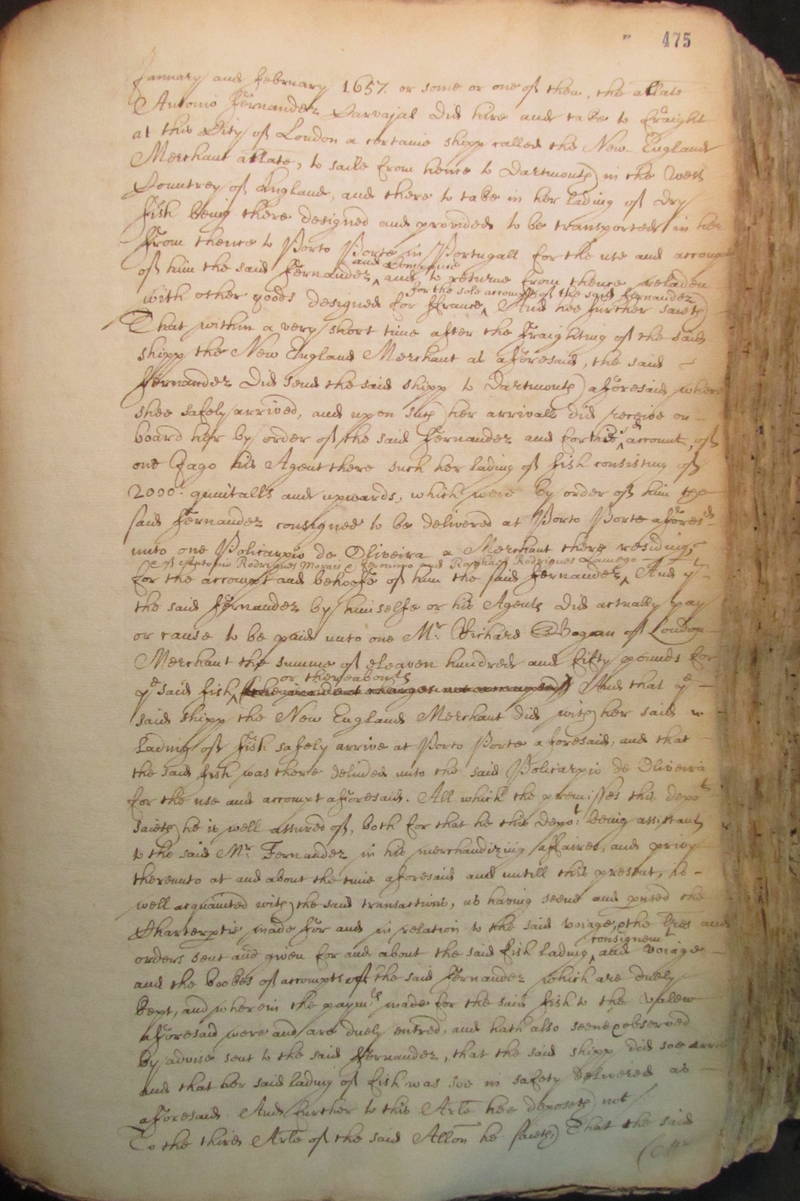 475
January and February 1657 or some or one of them, the allate
Antonio Fernandez Carvajal did hire and take to fraight
at this City of London a certaine shipp called the New England
Merchant arlate, to saile from hence to Dartmouth in the West
Countrey of England, and there to take in her lading of dry
fish being there designed and provided to be transported in her
from thence to Porto Porte in Portugall for the use and accompt
of him the said Fernandez and Companie and to returne from thence reladen
with other goods designed for ffrance for the sole accompt of the said Fernandez, And hee further saieth
That within a very short time after the fraighting of the said
shipp the New England Merchant as aforesaid, the said
Fernandez did send the said shipp to Dartmouth aforesaid where
shee safely arrived, and upon such her arrivall did receive on
board her by order of the said Fernandez and for his account, of
one Jago his Agent there such her lading of fish consisting of
2000 quintalls and upwards, which were by order of him the
said Fernandez consigned to be delivered at Porto Porte aforesd
unto one Policarpio de Oliveira a Merchant there residing
of Antonio Rodrigues Moraes Jeronimo and Raphael Rodrigues Lamego
for the accompt and behoofe of him the said Fernandez, And yt
the said Fernandez by himselfe or his Agents did actually pay
or cause to be paid unto one Mr. Richard Bogan of London
Merchant the summe of eleaven hundred and fifty pounds for
or thereabouts
ye said fish And that ye
said shipp the New England Merchant did with her said
lading of fish safely arrive at Porto Porte aforesaid, and that
the said fish was there delivered unto the said Policarpio de Oliveira
for the use and accompt aforesaid. All which the premisses this depot
saieth he is well assured of, both for that he this depot being assistant
to the said Mr. Fernandez in his merchandizing affaires, and privy
thereunto at and about the time aforesaid and untill this present, is
well acquainted with the said transactions, as having seene and the
Charterptie made for and in relation to the said voiage, the lres and
orders sent and given for and about the said fish lading consignemt and voiage
and the bookes of accompts of the said Fernandez which are duely
kept, and wherein the paymts made for the said fish to the valew
aforesaid were and are duely entred, and hath also seene observed
by advise sent to the said Fernandez, that the said shipp did soe arrive
and that her said lading of fish was soe in safety delivered as
aforesaid. And further to this Arle hee deposeth not
To the third Arle of the said Allon he saieth That the said